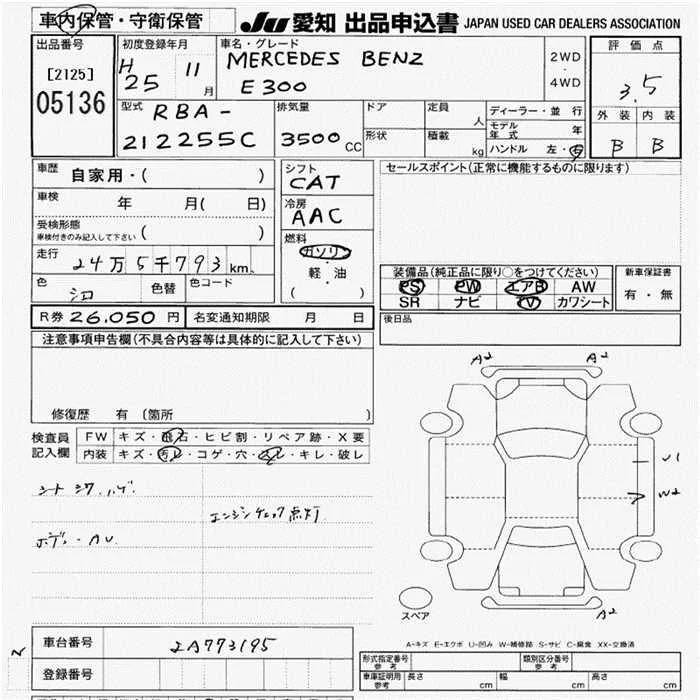 車内保管・守衛保管
JU 愛知 出品申込書 JAPAN USED CAR DEALERS ASSOCIATION
出品番号
[2125]
05136
初度登録年月
H 25 11 月
車名・グレード
MERCEDES BENZ
E300
2WD
・
4WD
評価点
3.5
外装 内装
B B
型式
RBA-
212255C
排気量
3500 CC
ドア
形状
定員
人
積載
kg
ディーラー・並行
モデル年式 年
ハンドル 左・右
車歴
自家用・( )
車検
年 月( 日)
受検形態
車検付きのみ記入して下さい ( )
走行
24万5千793 km
色
シロ
色替
色コード
シフト
CAT
冷房
AAC
燃料
ガソリン
軽・油
( )
セールスポイント(正常に機能するものに限ります)
装備品(純正品に限り○をつけてください)
PS PW エアB AW
SR ナビ TV カワシート
新車保証書
有・無
R券 26.050 円
名変通知期限 月 日
後日品
注意事項申告欄(不具合内容等は具体的に記入して下さい)
修復歴 有 (箇所 )
検査員
記入欄
FW キズ・飛石・ヒビ割・リペア跡・X要
内装 キズ・汚レ・コゲ・穴・スレ・キレ・破レ
シート シワ.ハゲ.
エンジンチェック点灯.
ボディ-AU.
A2
A2
U1
W2
A2
スペア
A-キズ E-エクボ U-凹み W-補修跡 S-サビ C-腐食 XX-交換済
車台番号
2A773195
登録番号
形式指定番号
参考
類別区分番号
参考
車庫証明用
参考
長さ cm
幅 cm
高さ cm